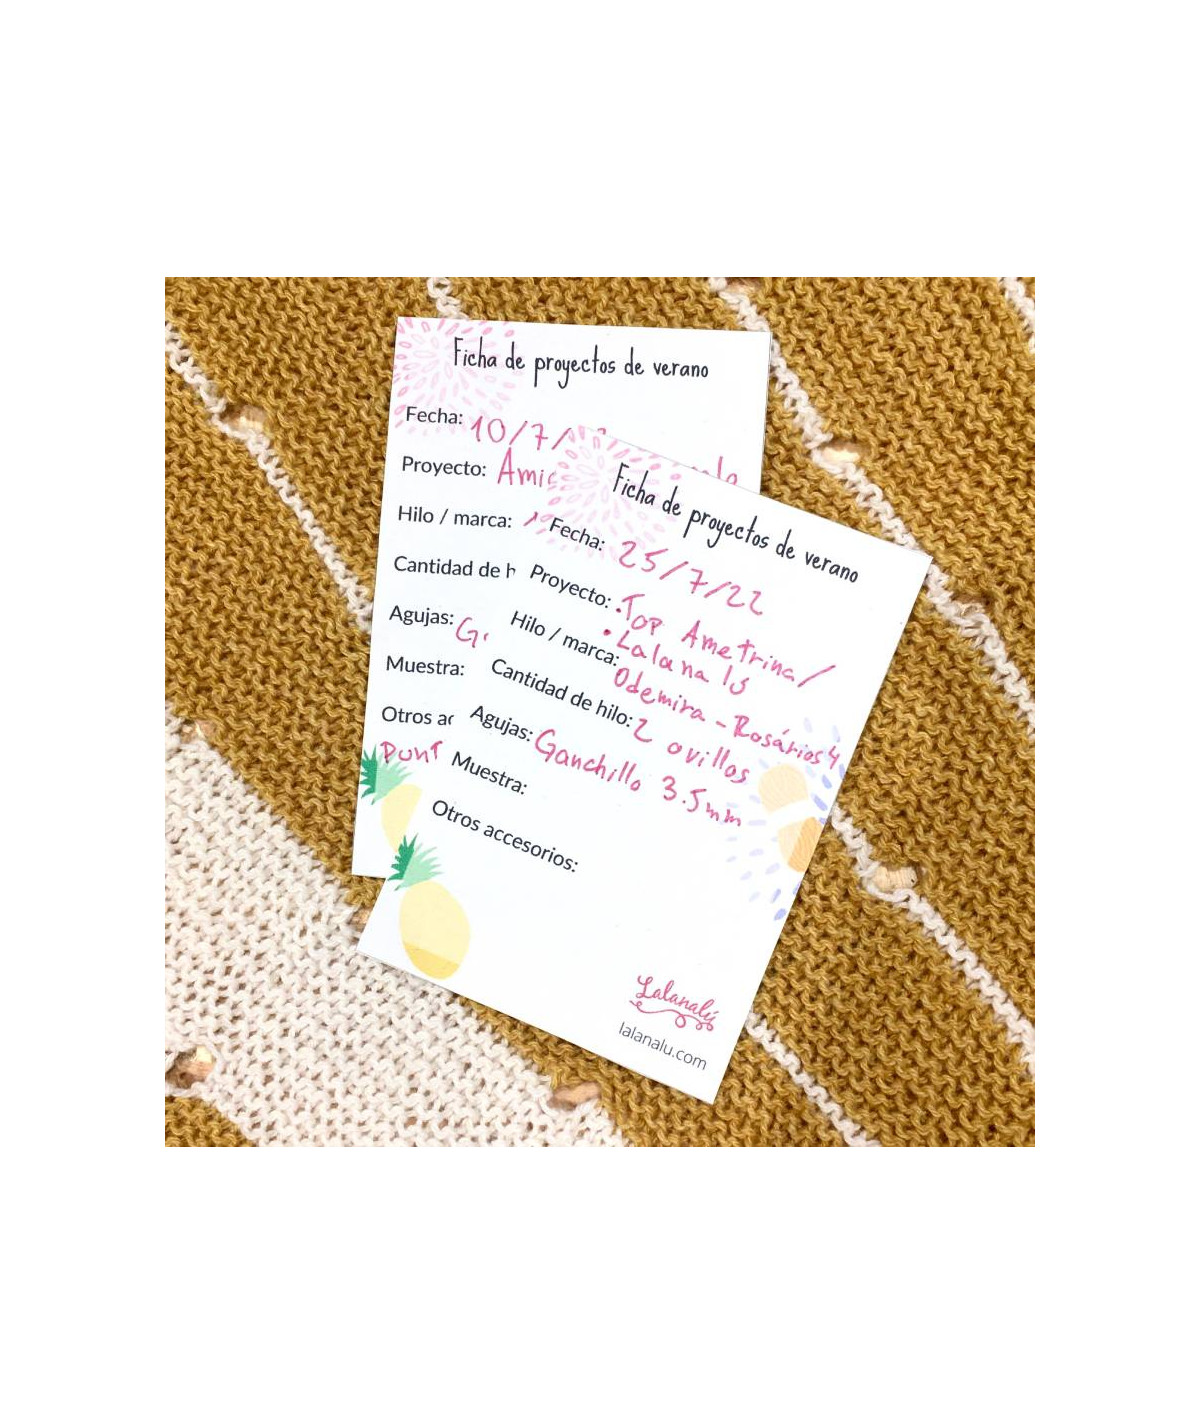 Ficha de proyectos de verano
Fecha: 10/7/
Proyecto: Ami
Hilo / marca:
Cantidad de h
Agujas: G
Muestra:
Otros ac
Punt
Ficha de proyectos de verano
Fecha: 25/7/22
Proyecto: • Top Ametrina/
• Lalanalú
Hilo / marca: Odemira - Rosários 4
Cantidad de hilo: 2 ovillos
Agujas: Ganchillo 3.5mm
Muestra:
Otros accesorios:
Lalanalú
lalanalu.com